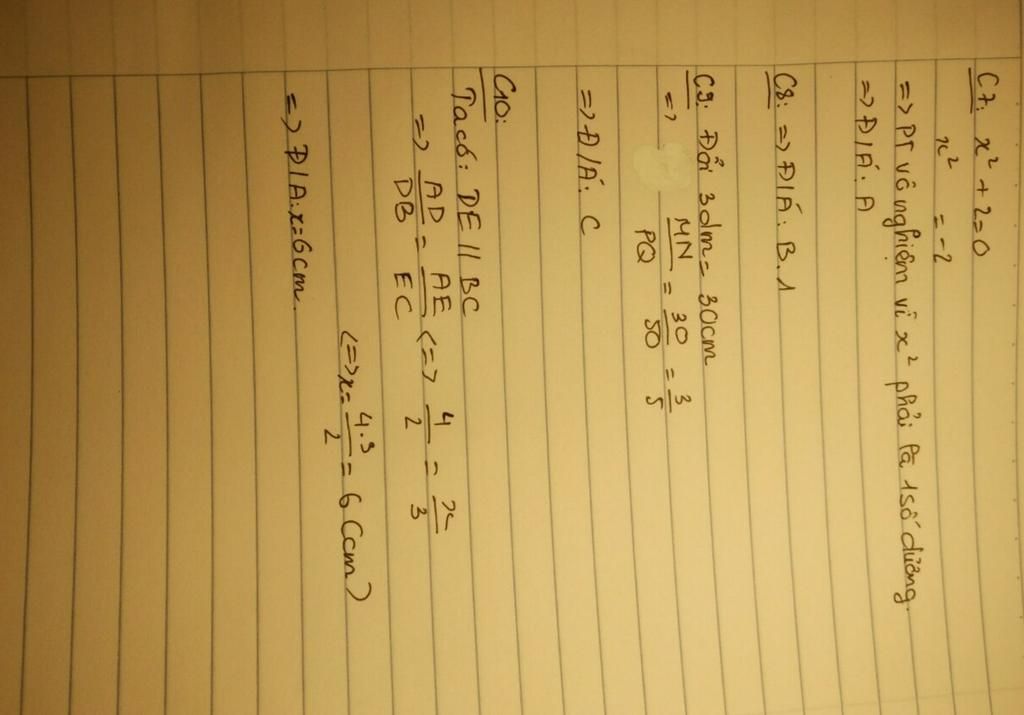 C7: x² + 2 = 0
x² = -2
=> PT vô nghiệm vì x² phải là 1 số dương.
=> Đ/Á: A
C8: => Đ/Á: B. 1
C9: Đổi 3dm = 30cm
=> MN/PQ = 30/50 = 3/5
=> Đ/Á: C
C10:
Ta có: DE // BC
=> AD/DB = AE/EC (=> 4/2 = x/3
(=> x = 4.3/2 = 6 (cm)
=> Đ/A: x = 6cm.